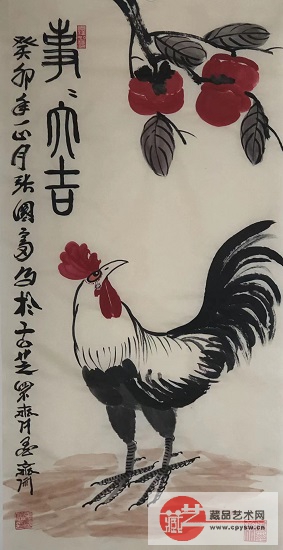 事〻大吉
癸卯年正月张国富写于古芝罘
藏品艺术网
www.cpysw.cn